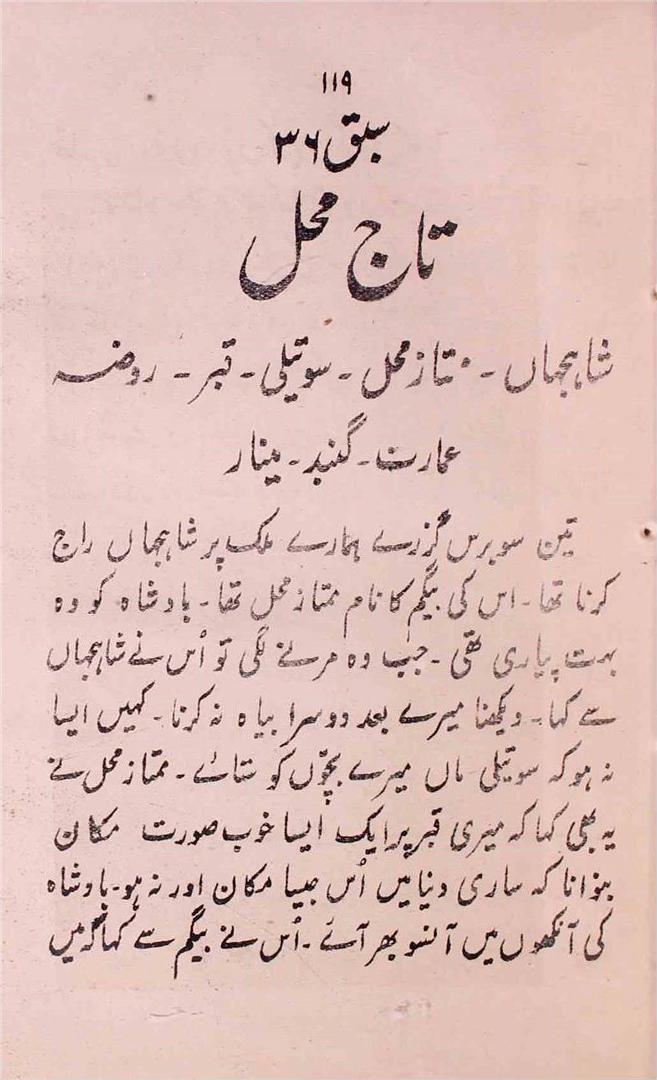 ۱۱۹
سبق ۳۶
تاج محل
شاہجہاں - ممتاز محل - سوتیلی - قبر - روضہ
عمارت - گنبد - مینار
تین سو برس گزرے ہمارے ملک پر شاہجہاں راج
کرتا تھا - اس کی بیگم کا نام ممتاز محل تھا - بادشاہ کو وہ
بہت پیاری تھی - جب وہ مرنے لگی تو اُس نے شاہجہاں
سے کہا - دیکھنا میرے بعد دوسرا بیاہ نہ کرنا - کہیں ایسا
نہ ہو کہ سوتیلی ماں میرے بچّوں کو ستائے - ممتاز محل نے
یہ بھی کہا کہ میری قبر پر ایک ایسا خوب صورت مکان
بنوانا کہ ساری دنیا میں اُس جیسا مکان اور نہ ہو - بادشاہ
کی آنکھوں میں آنسو بھر آئے - اُس نے بیگم سے کہا کہ میں